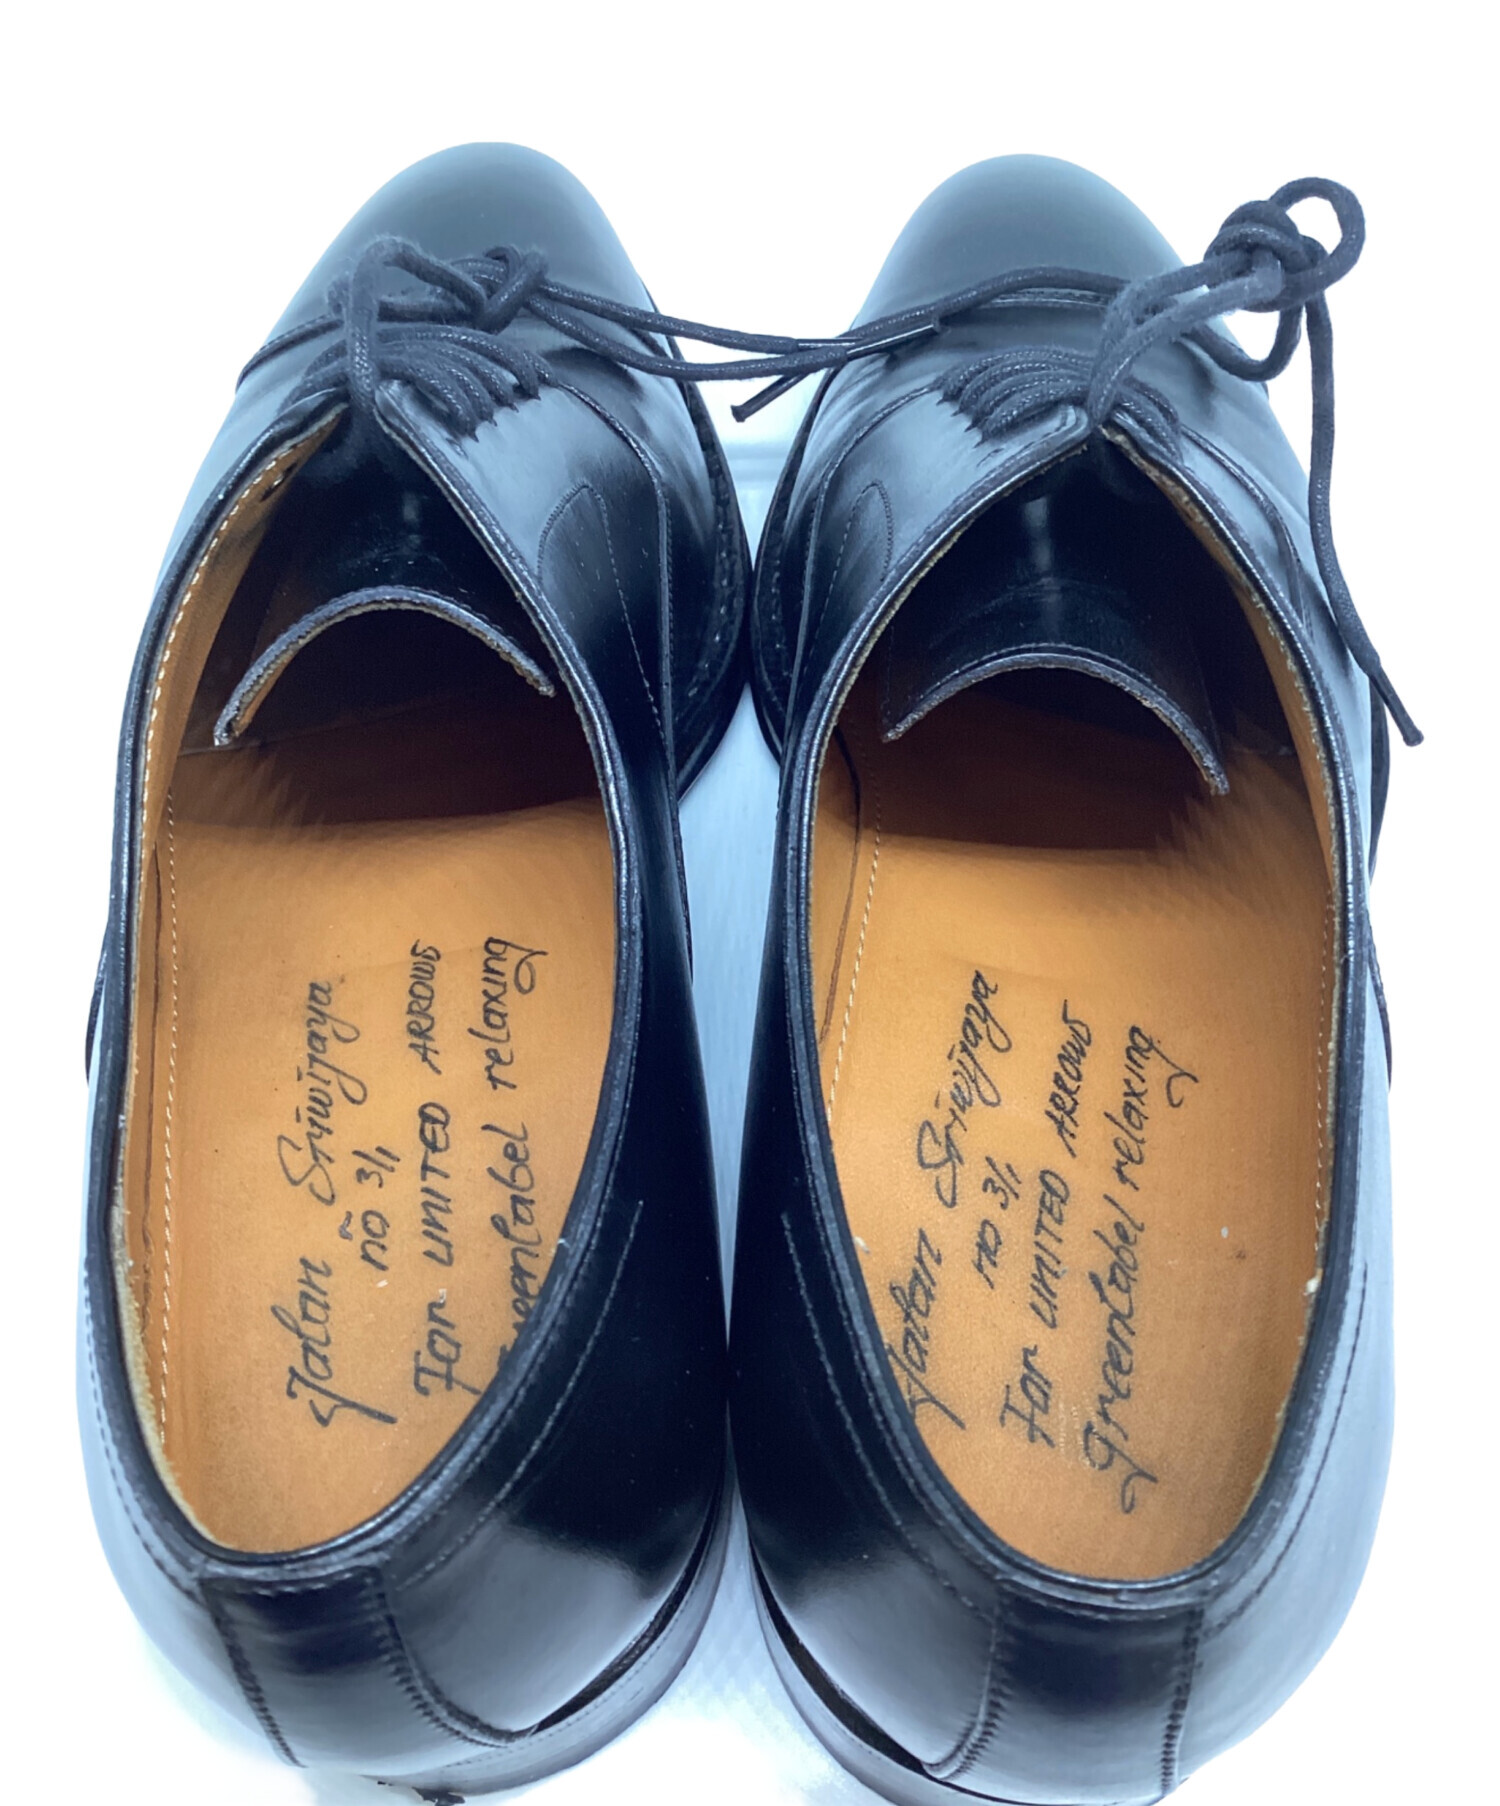 Jalan Sriwijaya
nō 3/1
For UNITED ARROWS
greenlabel relaxing
Jalan Sriwijaya
no 3/1
For UNITED ARROWS
greenlabel relaxing